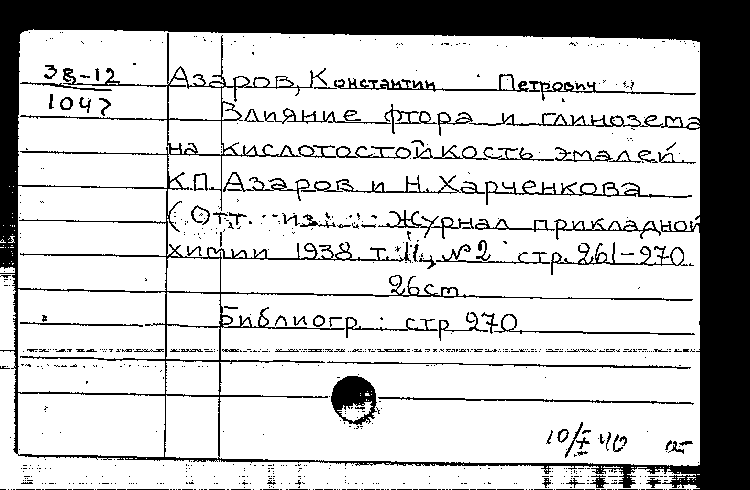 38-12
1047
Азаров, Константин Петрович
Влияние фтора и глинозема
на кислотостойкость эмалей.
К.П. Азаров и Н. Харченкова
(Отт. из: Журнал прикладной
химии 1938. т. 11, №2 стр. 261-270.
26 cm.
Библиогр.: стр 270.
10/I 40